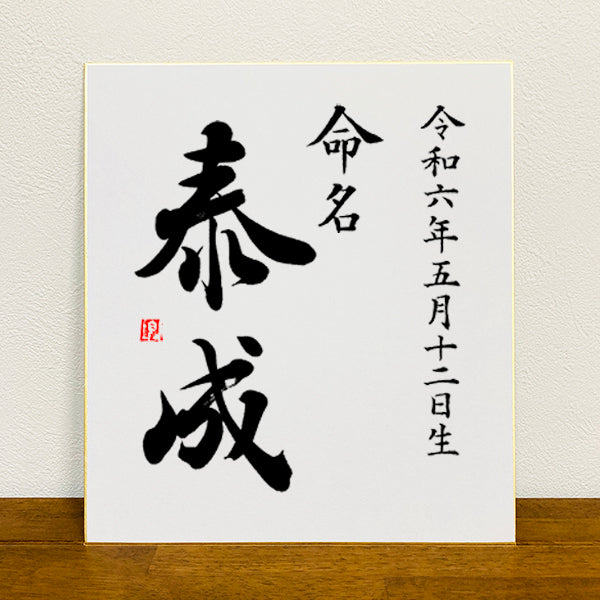 令和六年五月十二日生
命名
泰成